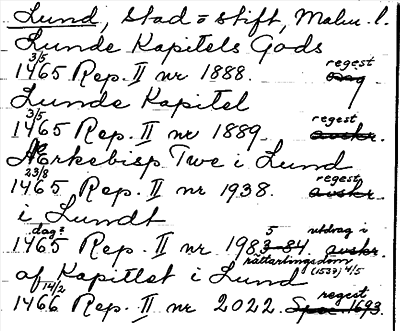 Lund, stad = stift, Malm. l.
Lunde Kapitels Gods
3/5 regest
1465 Rep. II nr 1888.
Lunde Kapitel
3/5 regest
1465 Rep. II nr 1889. avskr.
Ærkebisp Twe i Lund
23/8 regest
1465 Rep. II nr 1938. avskr.
i Lundt
dag? 5 utdrag i
1465 Rep. II nr 1983-84. avskr.
rättartingsdom (1537) 4/5
af Kapitlet i Lund
14/2 regest
1466 Rep. II nr 2022. Spec. 1693.